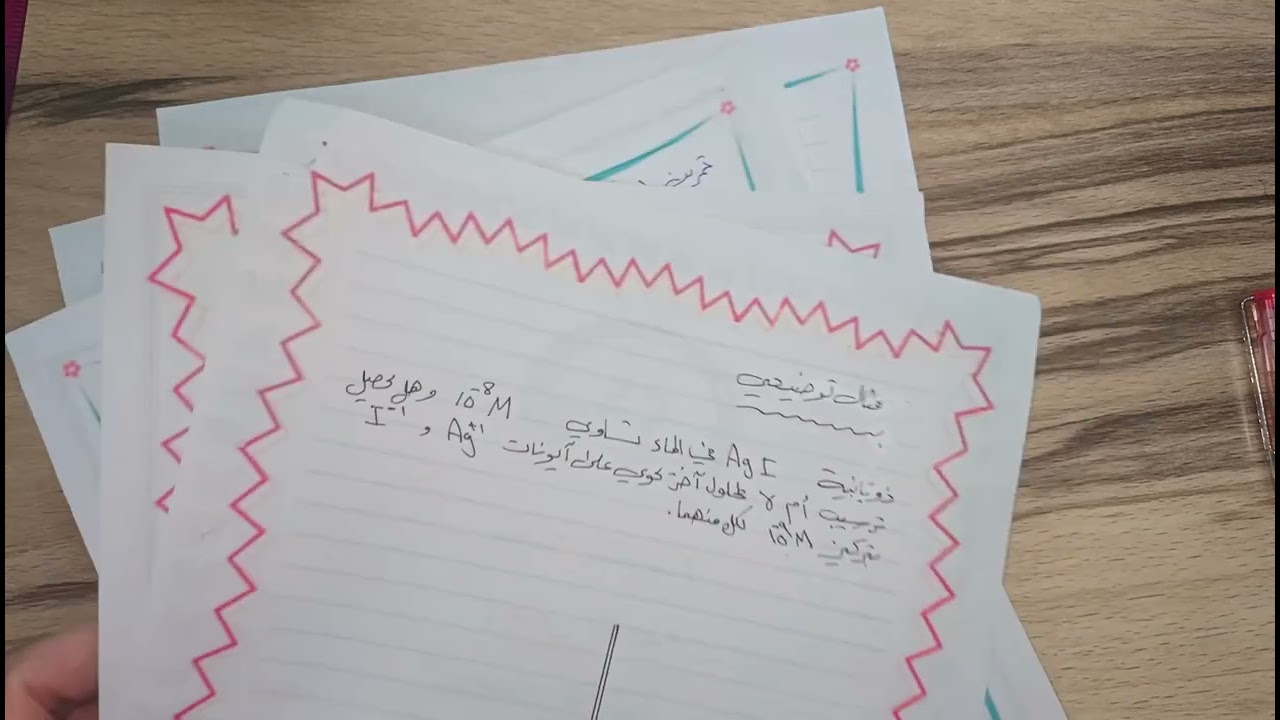 تمرين
مثال توضيحي
ذوبانية AgI في الماء تساوي 10⁻⁸M وهل يحصل
ترسيب أم لا لمحلول آخر يحوي على أيونات Ag⁺¹ و I⁻¹
بتركيز M لكل منهما.